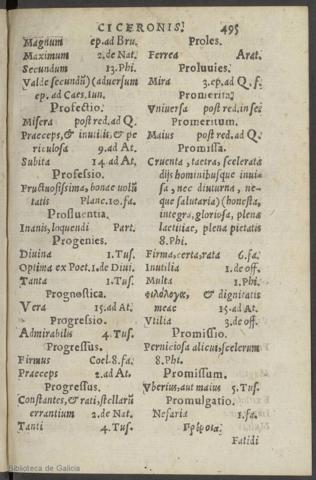 CICERONIS. 495
Magnum ep. ad Bru.
Maximum 2. de Nat.
Secundum 13. Phi.
Valde secundũ) (aduersum
ep. ad Caes. Iun.
Profectio.
Misera post red. ad Q.
Praeceps, & inutilis, & pe
riculosa 9. ad At.
Subita 14. ad At.
Professio.
Fructuosissima, bonae volũ
tatis Planc. 10. fa.
Profluentia.
Inanis, loquendi Part.
Progenies.
Diuina 1. Tus.
Optima ex Poet. 1. de Diui.
Tanta 1. Tus.
Prognostica.
Vera 15. ad At.
Progressio.
Admirabilis 4. Tus.
Progressus.
Firmus Coel. 8. fa.
Praeceps 2. ad At.
Progressus.
Constantes, & rati, stellarũ
errantium 2. de Nat.
Tanti 4. Tus.
Proles.
Ferrea Arat.
Proluuies.
Mira 3. ep. ad Q. f.
Promerita.
Vniuersa post red. in se:
Promeritum.
Maius post red. ad Q.
Promissa.
Cruenta, taetra, scelerata
dijs hominibusque inui-
sa, nec diuturna, ne-
que salutaria) (honesta,
integra, gloriosa, plena
laetitiae, plena pietatis
8. Phi.
Firma, certa, rata 6. fa.
Inutilia 1. de off.
Multa 1. Phi.
& dignitatis
meae 15. ad At.
Vtilia 3. de off.
Promissio.
Perniciosa alicui, scelerum
8. Phi.
Promissum.
Vberius, aut maius 5. Tus.
Promulgatio.
Nefaria 1. fa.
Fatidi
Biblioteca de Galicia